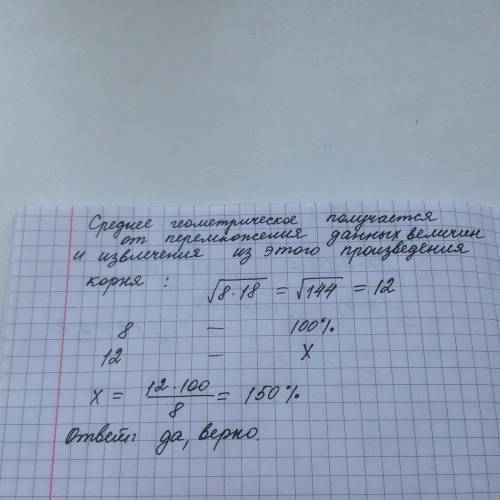 Среднее геометрическое получается
от перемножения данных величин
и извлечения из этого произведения
корня : √8·18 = √144 = 12
8 — 100%
12 — X
X = 12·100/8 = 150%
Ответ: да, верно.